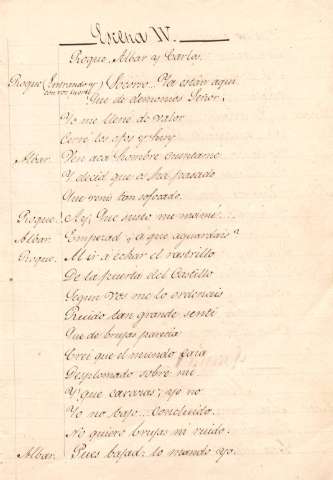 Escena IV.
Roque, Albar y Carlos.
Roque (Entrando y con voz fuerte) Socorro... Ya están aquí
Que de demonios Señor.
Yo me llené de valor
Cerré los ojos y huy
Albar. Ven aca hombre cuentame
Y decid que os ha pasado
Que venis tan sofocado.
Roque. ¡Ay, Que susto me mamé!...
Albar. Empezad ¿a que aguardais?
Roque. Al ir a echar el rastrillo
De la puerta del Castillo
Segun vos me lo ordenais
Ruido tan grande senti
Que de brujas parecia
Crei que el mundo caia
Desplomado sobre mi
Y que caras; yo no
Yo no bajo... concluido.
No quiero brujas ni ruido.
Albar. Pues bajad; lo mando yo.